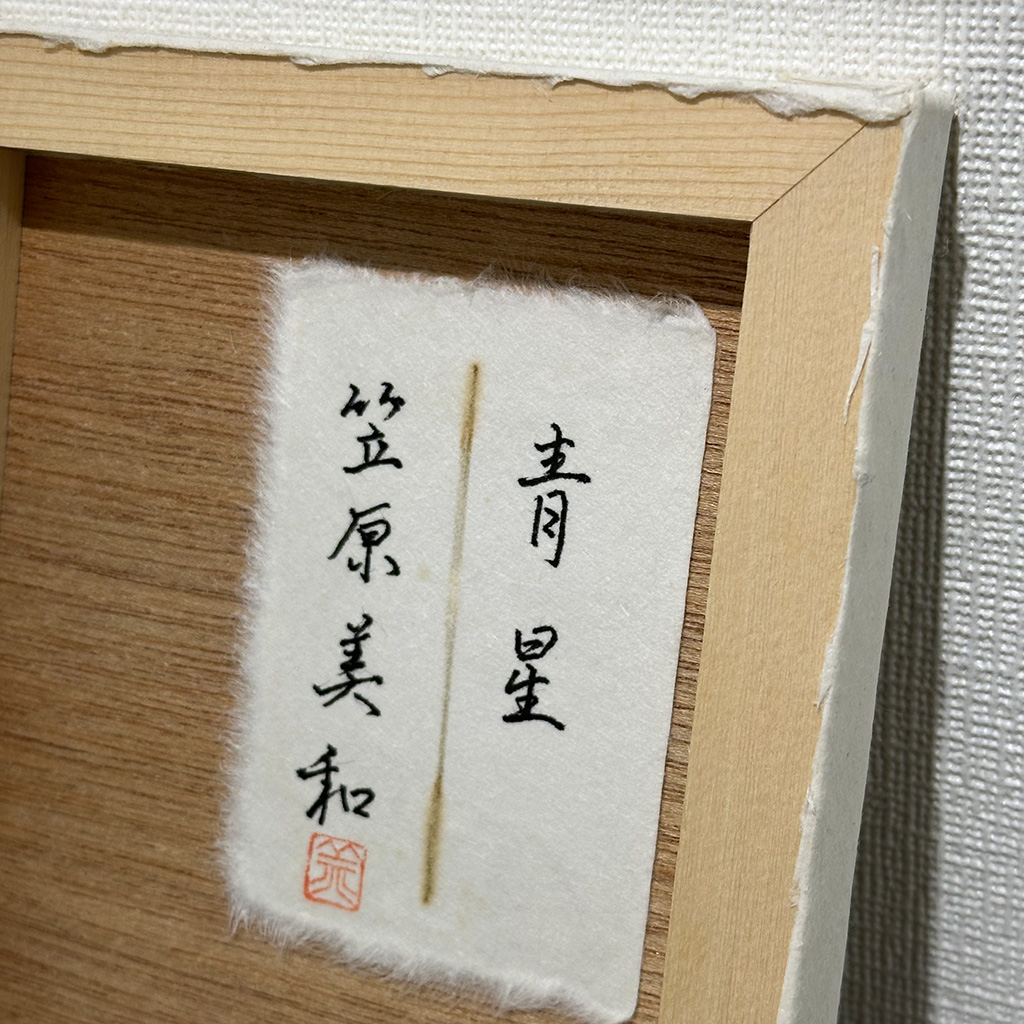 青星
笠原美和